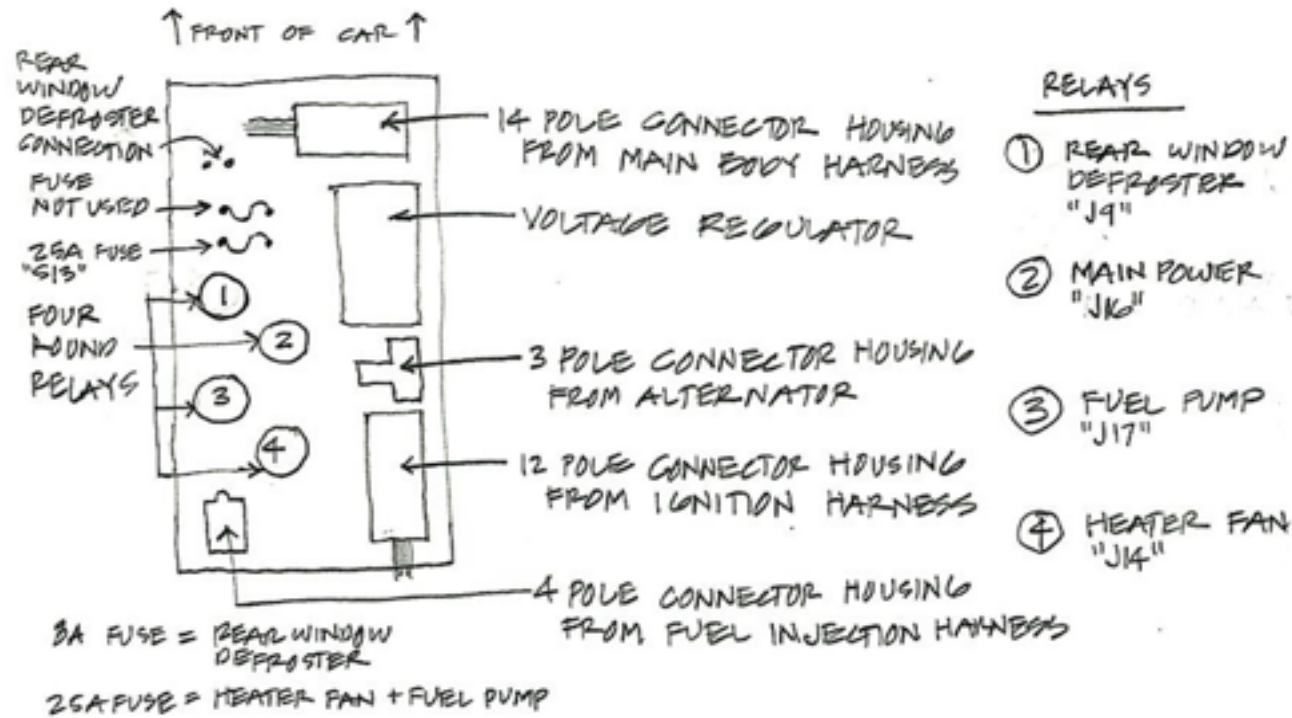 ↑ FRONT OF CAR ↑
REAR
WINDOW
DEFROSTER
CONNECTION
FUSE
NOT USED
25A FUSE
"S13"
FOUR
ROUND
RELAYS
1
2
3
4
14 POLE CONNECTOR HOUSING
FROM MAIN BODY HARNESS
VOLTAGE REGULATOR
3 POLE CONNECTOR HOUSING
FROM ALTERNATOR
12 POLE CONNECTOR HOUSING
FROM IGNITION HARNESS
4 POLE CONNECTOR HOUSING
FROM FUEL INJECTION HARNESS
8A FUSE = REAR WINDOW
DEFROSTER
25A FUSE = HEATER FAN + FUEL PUMP
RELAYS
1 REAR WINDOW
DEFROSTER
"J9"
2 MAIN POWER
"J16"
3 FUEL PUMP
"J17"
4 HEATER FAN
"J14"